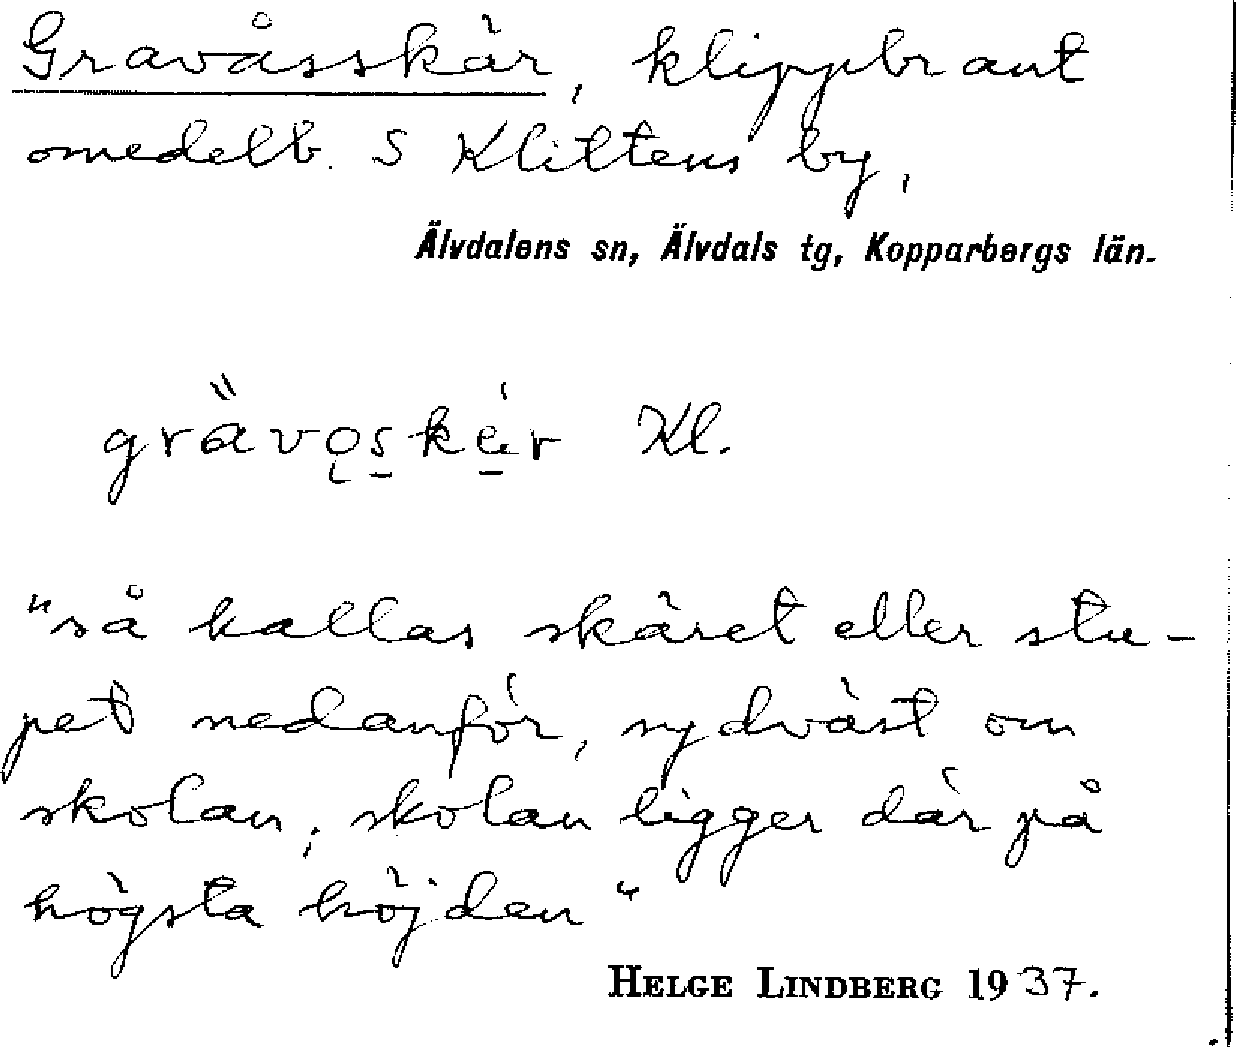 Gravåsskär, klippbrant
omedelb. S Klittens by,
Älvdalens sn, Älvdals tg, Kopparbergs län.
Kl.
"så kallas skäret eller stu-
pet nedanför, sydväst om
skolan; skolan ligger där på
högsta höjden"
HELGE LINDBERG 1937.